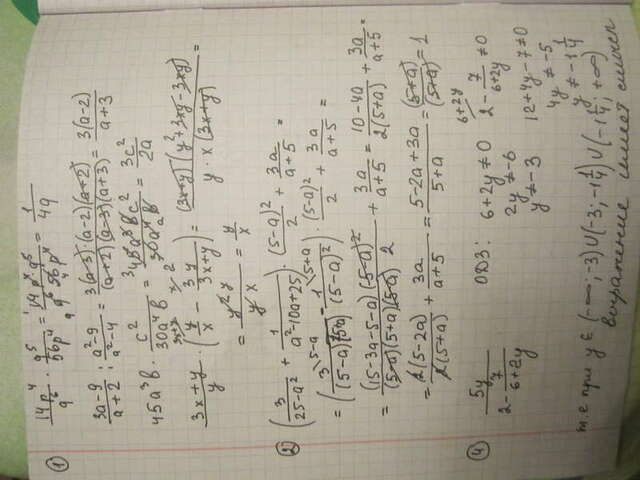 ① 14p⁴/q⁶ · q⁵/56p⁴ = 14p⁴ · q⁵/q⁶ 56p⁴ = 1/4q
3a-9/a+2 : a²-9/a²-4 = 3(a-3)·(a-2)(a+2)/(a+2)(a-3)(a+3) = 3(a-2)/a+3
45a³b · c²/30a⁴b = 45a³bc²/30a⁴b = 3c²/2a
3x+y/y · (y/x - 3y/3x+y) = (3x+y)(y²+3xy-3xy)/y·x(3x+y) =
= y²/y x = y/x
② (3/25-a² + 1/a²-10a+25) · (5-a)²/2 + 3a/a+5 =
= (3/(5-a)(5+a) - 1/(5-a)²) · (5-a)²/2 + 3a/a+5 =
= (15-3a-5-a)(5-a)²/(5-a)(5+a)(5-a) 2 + 3a/a+5 = 10-4a/2(5+a) + 3a/a+5 =
= 2(5-2a)/2(5+a) + 3a/a+5 = 5-2a+3a/5+a = (5+a)/(5+a) = 1
④ 5y/2-7/6+2y ОДЗ: 6+2y≠0 2-7/6+2y≠0
2y≠-6 12+4y-7≠0
y≠-3 4y≠-5
y≠-1 1/4
т.е при y ∈ (-∞;-3)∪(-3;-1 1/4)∪(-1 1/4;+∞)
выражение имеет смысл